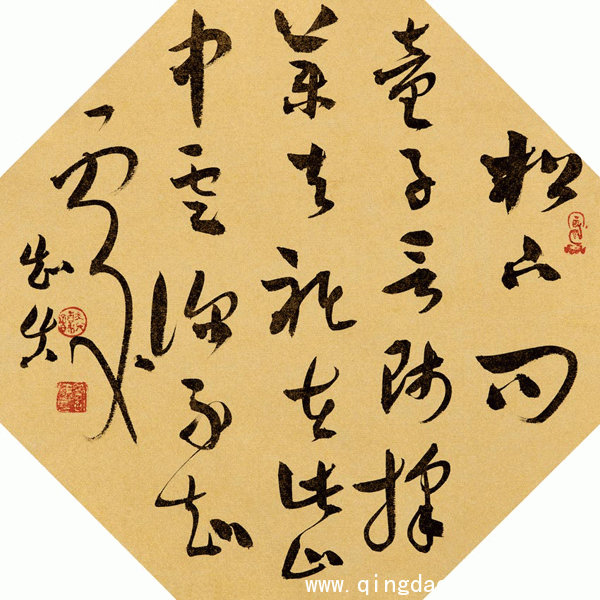 松下問
童子言師採
藥去祇在此山
中雲深不知
處
www.qingdao